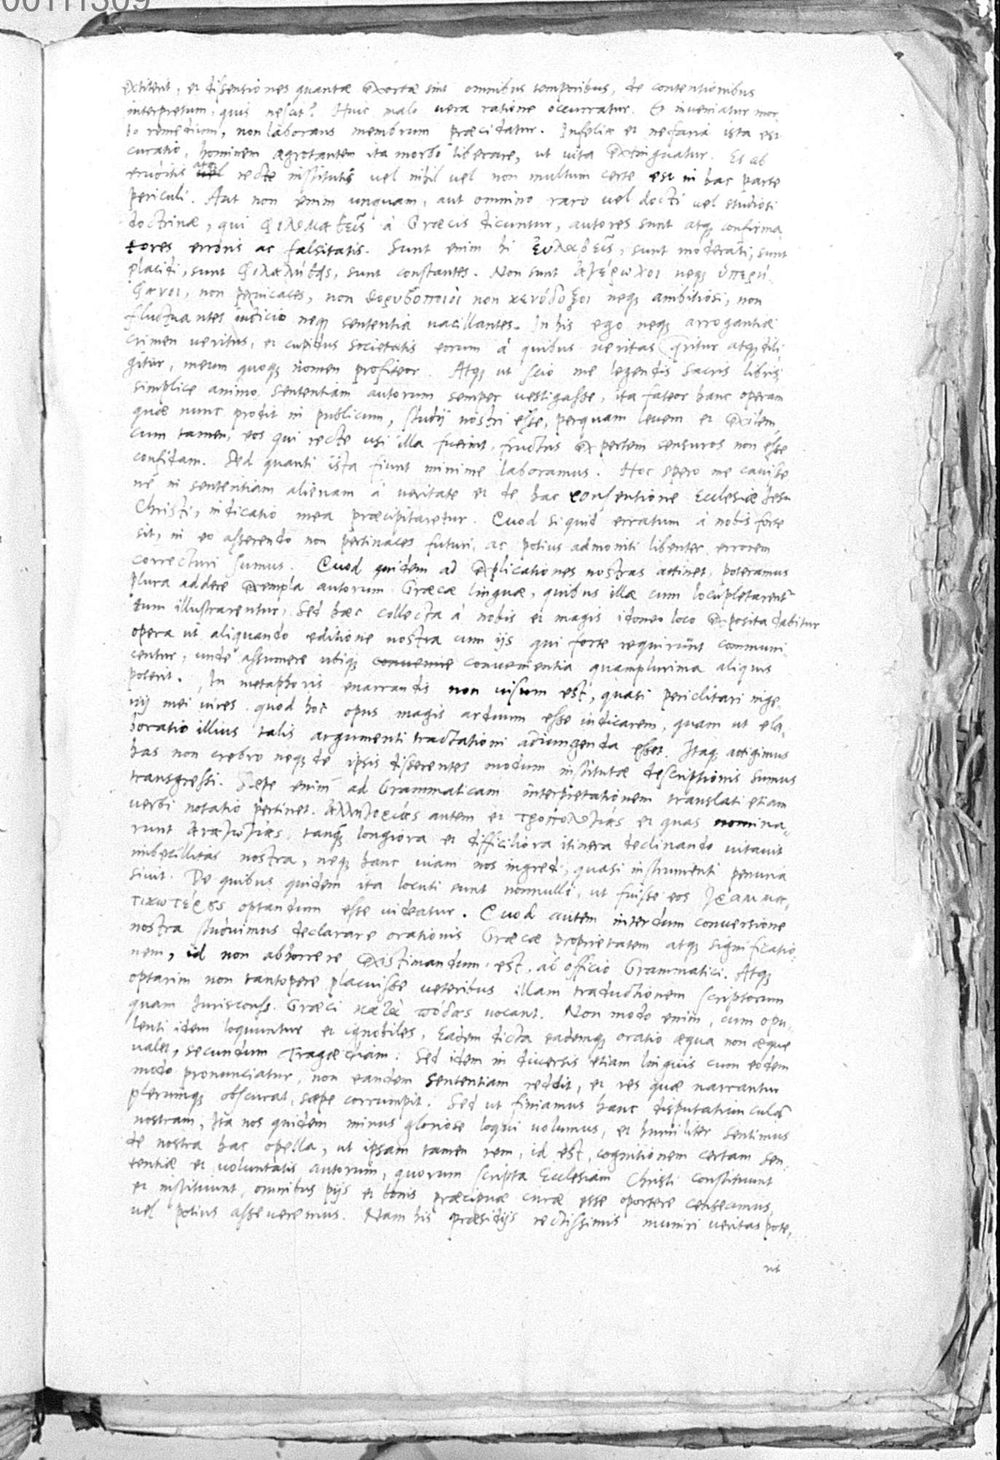 00111309
extitent, et disensiones quantae exortae sint omnibus temporibus, de contentionibus
interpretum, quis nescit? Huic malo vera ratione occurratur. Et inveniatur mor
bo remedium, non laborans membrum praecidatur. Infelix et nefaria ista est
curatio, hominem aegrotantem ita morbo liberare, ut vita extinguatur. Et ab
eruditis atq recte institutis vel nihil vel non multum certe est in hac parte
periculi. Aut non enim unquam, aut omnino raro vel docti vel studiosi
doctrinae, qui φιλομαθεῖς à Graecis dicuntur, autores sunt atq confirma
tores erroris ac falsitatis. Sunt enim hi εὐλαβεῖς, sunt moderati, sunt
placidi, sunt φιλαλήθεις, sunt constantes. Non sunt ἀγέρωχοι neq ὑπερή
φανοι, non pervicaces, non θορυβοποιοὶ non κενόδοξοι neq ambitiosi, non
fluctuantes iudicio neq sententia vacillantes. In his ego neq arrogantiae
crimen veritus, et cupidus societatis eorum à quibus veritas qritur atq dili
gitur, meum quoq nomen profiteor. Atq ut scio me legendis sacris libris
simplice animo, sententiam autorum semper vestigasse, ita fateor hanc operam
quae nunc prodit in publicum, studij nostri esse, perquam levem et exilem
cum tamen, eos qui recte usi illa fuerint, fructus expertem censuros non esse
confidam. Sed quanti ista fiunt minime laboramus. Hoc spero me cavisse
ne in sententiam alienam à veritate et de hac consentione Ecclesiae Jesu
Christi, indicatio mea praecipitaretur. Quod siquid erratum à nobis forte
sit, in eo asserendo non pertinaces futuri, ac potius admoniti libenter errorem
correcturi sumus. Quod quidem ad explicationes nostras attinet, poteramus
plura addere exempla autorum Graecae linguae, quibus illae cum locupletarent
tum illustrarentur, Sed haec collecta à nobis et magis idoneo loco exposita dabitur
opera ut aliquando editione nostra cum ijs qui forte requirunt communi
centur, unde assumere ubiq convenientia quamplurima aliquis
poterit. In metaphoris enarrandis non visum est, quasi periclitari inge
nij mei vires quod hoc opus magis arduum esse indicarem, quam ut ela
boratio illius talis argumenti tractationi adiungenda esset. Itaq attigimus
has non crebro neq de ipsis disserentes modum institutae descriptionis sumus
transgressi. Saepe enim ad Grammaticam interpretationem translati etiam
verbi notatio pertinet. ἀλληγορίας autem et τροπολογίας et quas nomina
runt ἀναγωγὰς, tanq longiora et difficiliora itinera declinando vitavit
imbecillitas nostra, neq hanc viam nos ingredi, quasi instrumenti penuria
sivit. De quibus quidem ita locuti sunt nonnulli, ut fuisse eos γραμμα
τικωτέρους optandum esse videatur. Quod autem interdum conversione
nostra studuimus declarare orationis Graecae proprietatem atq significatio
nem, id non abhorrere existimandum est, ab officio Grammatici. Atq
optarim non tantopere placuisse veteribus illam traductionem scriptorum
quam Jurisconss. Graeci κατὰ πόδας vocant. Non modo enim, cum opu
lenti idem loquuntur et ignobiles, Eadem dicta eademq oratio aequa non aeque
valet, secundum Tragoediam: Sed idem in diversis etiam linguis cum eodem
modo pronunciatur, non eandem sententiam reddit, et res quae narrantur
plerunq obscurat, saepe corrumpit. Sed ut finiamus hanc disputatiunculam
nostram, Ita nos quidem minus gloriose loqui volumus, et humiliter sentimus
de nostra hac opella, ut ipsam tamen rem, id est, cognitionem certam sen
tentiae et voluntatis autorum, quorum scripta Ecclesiam Christi constituunt
et instituunt, omnibus pijs et bonis praecipuae curae esse oportere censeamus,
vel potius asseveremus. Nam his praesidijs rectissimis muniri veritas pote
rit